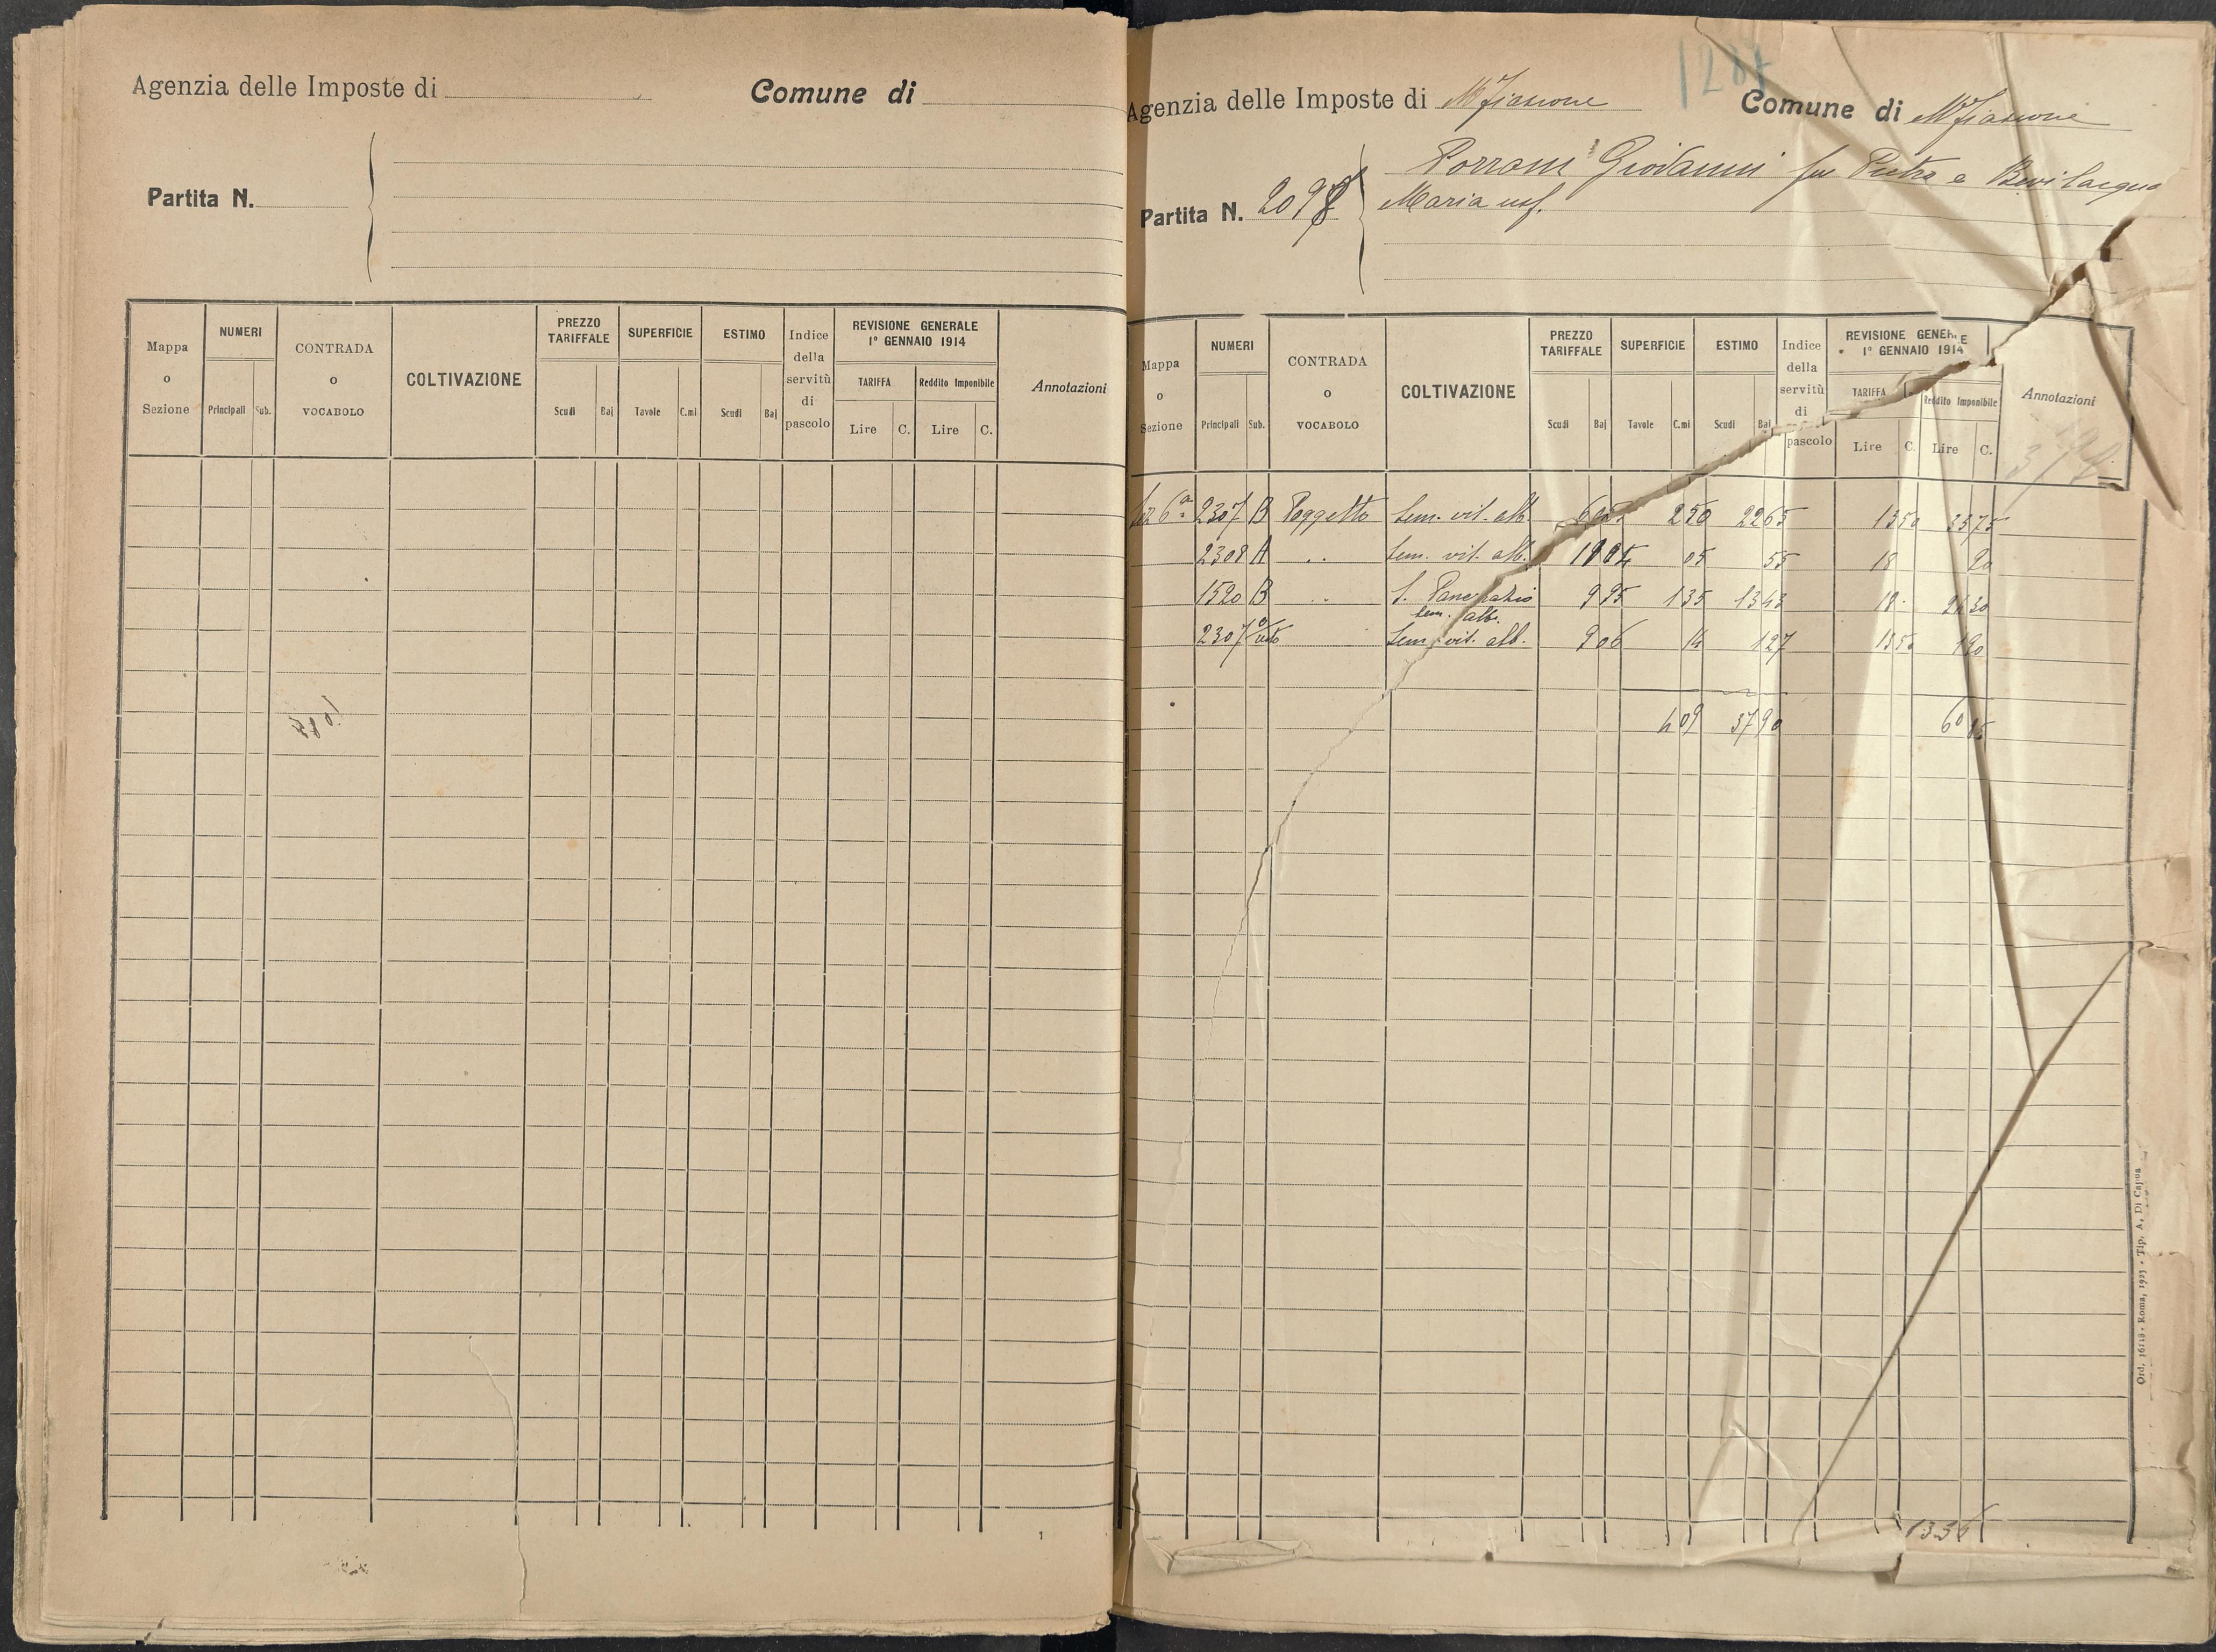 Agenzia delle Imposte di
Comune di
Partita N.
Mappa o Sezione
NUMERI
Principali
Sub.
CONTRADA o VOCABOLO
COLTIVAZIONE
PREZZO TARIFFALE
Scudi
Baj
SUPERFICIE
Tavole
C.mi
ESTIMO
Scudi
Baj
Indice della servitù di pascolo
REVISIONE GENERALE
1° GENNAIO 1914
TARIFFA
Reddito Imponibile
Lire
C.
Lire
C.
Annotazioni
1
Agenzia delle Imposte di Mfiascone
Comune di Mfiascone
Porroni Giovanni fu Pietro e Bevilacqua
Partita N. 209
Maria usf.
Mappa o Sezione
NUMERI
Principali
Sub.
CONTRADA o VOCABOLO
COLTIVAZIONE
PREZZO TARIFFALE
Scudi
Baj
SUPERFICIE
Tavole
C.mi
ESTIMO
Scudi
Baj
Indice della servitù di pascolo
REVISIONE GENER E
1° GENNAIO 1914
TARIFFA
Reddito Imponibile
Lire
C.
Lire
C.
Annotazioni
Sez 6ª 2307 B Poggetto Sem. vit. alb. 250 2265 1350 3375
2308 A .. Sem. vit. alb. 05 55 18 90
1520 B .. S. Pancrazio 995 135 1343 18 2430
Sem. alb.
2307 Sem. vit. alb. 906 14 127 1350 190
409 3790 60
Ord. 16118 - Roma, 1923 - Tip. A. Di Capua
1336